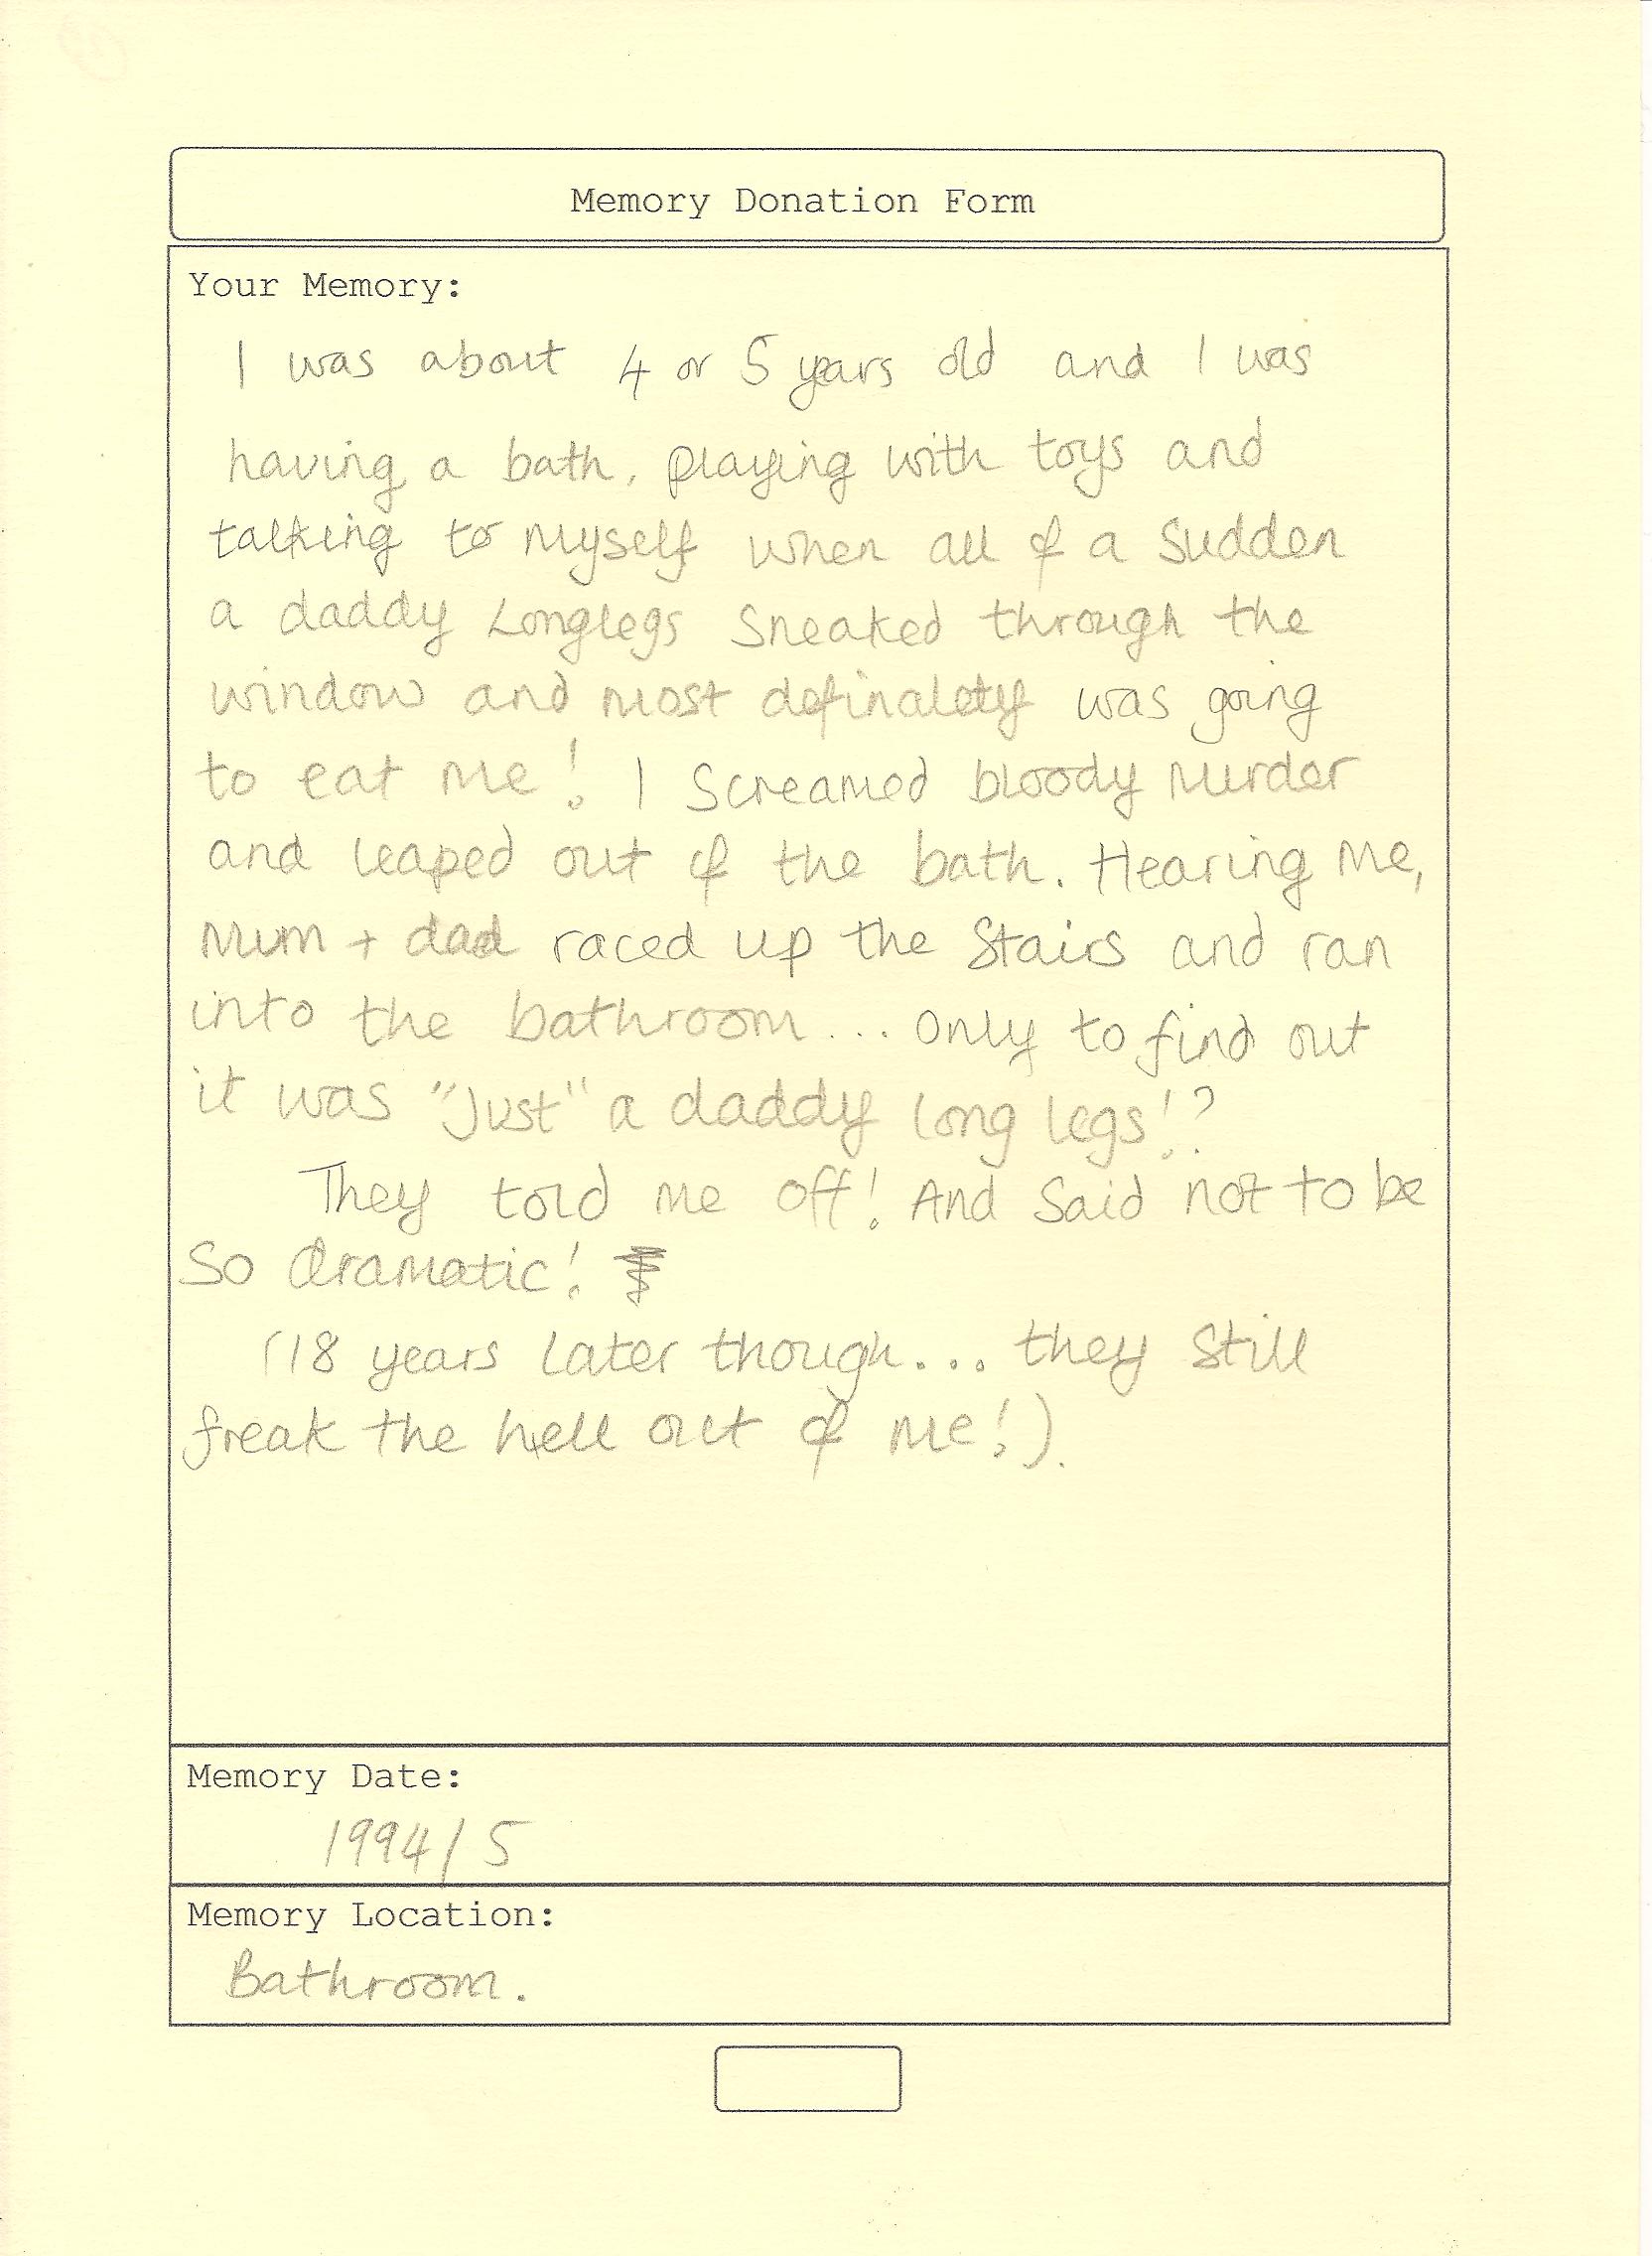 Memory Donation Form
Your Memory:
I was about 4 or 5 years old and I was
having a bath, playing with toys and
talking to myself when all of a sudden
a daddy Longlegs sneaked through the
window and most definalety was going
to eat me! I screamed bloody murder
and leaped out of the bath. Hearing me,
mum + dad raced up the stairs and ran
into the bathroom... only to find out
it was "just" a daddy long legs!?
They told me off! And said not to be
so dramatic!
(18 years later though... they still
freak the hell out of me!).
Memory Date:
1994/5
Memory Location:
Bathroom.